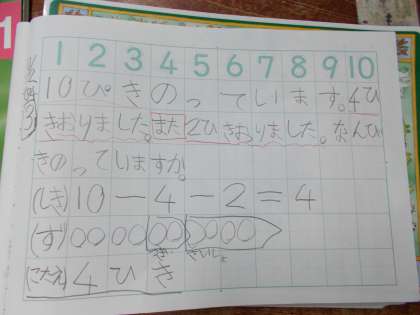 1 2 3 4 5 6 7 8 9 10
10ぴきのっています。4ひ
きおりました。また2ひきおりました。なんび
きのっていますか。
(しき)10-4-2=4
(ず)○○○○○○○○○○
さいしょ
(こたえ)4ひき